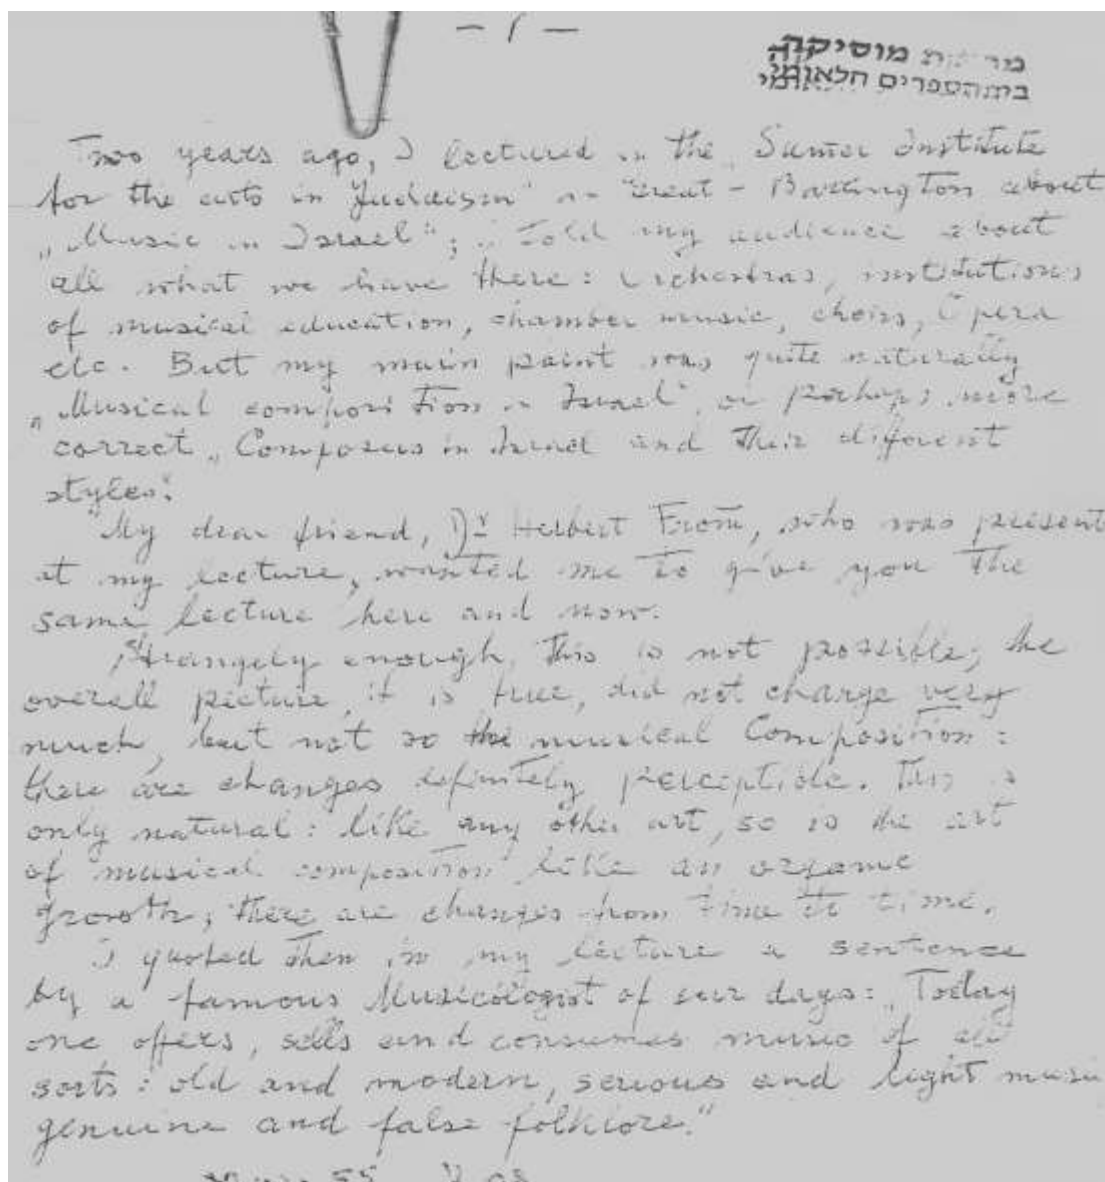 — 1 —
מוסיקה
בית הספרים הלאומי
Two years ago, I lectured in the „Sumer Institute
for the arts in Judaism" in Great - Barrington about
„Music in Israel"; I told my audience about
all what we have there: Orchestras, institutions
of musical education, chamber music, choirs, Opera
etc. But my main point was quite naturally
„Musical composition in Israel", or perhaps more
correct „Composers in Israel and their different
styles".
My dear friend, Dr Herbert Fromm, who was present
at my lecture, wanted me to give you the
same lecture here and now.
Strangely enough, this is not possible; the
overall picture, it is true, did not change very
much, but not so the musical Composition:
there are changes definitely perceptible. This is
only natural: like any other art, so is the art
of musical composition like an organic
growth; there are changes from time to time.
I quoted then in my lecture a sentence
by a famous Musicologist of our days: „Today
one offers, sells and consumes music of all
sorts: old and modern, serious and light music
genuine and false folklore."